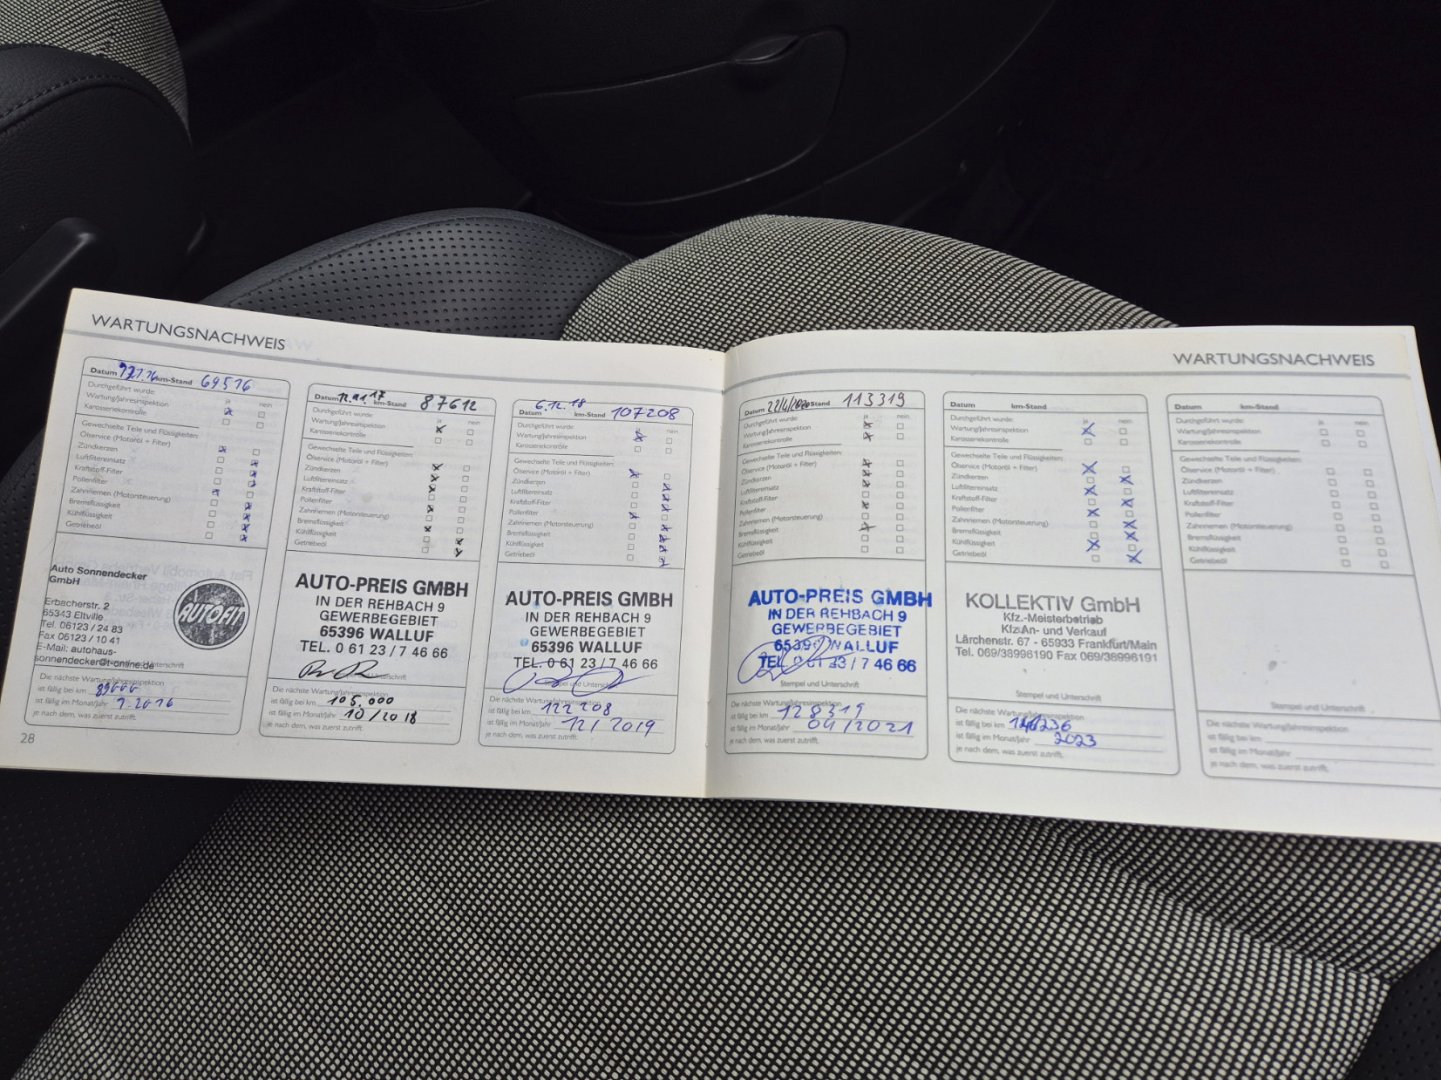 WARTUNGSNACHWEIS
Datum km-Stand 69516
Durchgeführt wurde: ja nein
Wartung/Jahresinspektion
Karosseriekontrolle
Gewechselte Teile und Flüssigkeiten:
Ölservice (Motoröl + Filter)
Zündkerzen
Luftfiltereinsatz
Kraftstoff-Filter
Pollenfilter
Zahnriemen (Motorsteuerung)
Bremsflüssigkeit
Kühlflüssigkeit
Getriebeöl
Auto Sonnendecker
GmbH
AUTOFIT
Erbacherstr. 2
65343 Eltville
Tel. 06123 / 24 83
Fax 06123 / 10 41
E-Mail: autohaus-
sonnendecker@t-online.de
Unterschrift
Die nächste Wartung/Jahresinspektion
ist fällig bei km
ist fällig im Monat/Jahr
je nach dem, was zuerst zutrifft.
28
Datum km-Stand 87612
Durchgeführt wurde: ja nein
Wartung/Jahresinspektion
Karosseriekontrolle
Gewechselte Teile und Flüssigkeiten:
Ölservice (Motoröl + Filter)
Zündkerzen
Luftfiltereinsatz
Kraftstoff-Filter
Pollenfilter
Zahnriemen (Motorsteuerung)
Bremsflüssigkeit
Kühlflüssigkeit
Getriebeöl
AUTO-PREIS GMBH
IN DER REHBACH 9
GEWERBEGEBIET
65396 WALLUF
TEL. 0 61 23 / 7 46 66
Die nächste Wartung/Jahresinspektion
ist fällig bei km 105.000
ist fällig im Monat/Jahr 10/2018
je nach dem, was zuerst zutrifft.
Datum 6.12.18 km-Stand 107208
Durchgeführt wurde: ja nein
Wartung/Jahresinspektion
Karosseriekontrolle
Gewechselte Teile und Flüssigkeiten:
Ölservice (Motoröl + Filter)
Zündkerzen
Luftfiltereinsatz
Kraftstoff-Filter
Pollenfilter
Zahnriemen (Motorsteuerung)
Bremsflüssigkeit
Kühlflüssigkeit
Getriebeöl
AUTO-PREIS GMBH
IN DER REHBACH 9
GEWERBEGEBIET
65396 WALLUF
TEL. 0 61 23 / 7 46 66
und Unterschrift
Die nächste Wartung/Jahresinspektion
ist fällig bei km 122 208
ist fällig im Monat/Jahr 12/2019
je nach dem, was zuerst zutrifft.
WARTUNGSNACHWEIS
Datum 22/4/2020 km-Stand 113319
Durchgeführt wurde: ja nein
Wartung/Jahresinspektion
Karosseriekontrolle
Gewechselte Teile und Flüssigkeiten:
Ölservice (Motoröl + Filter)
Zündkerzen
Luftfiltereinsatz
Kraftstoff-Filter
Pollenfilter
Zahnriemen (Motorsteuerung)
Bremsflüssigkeit
Kühlflüssigkeit
Getriebeöl
AUTO-PREIS GMBH
IN DER REHBACH 9
GEWERBEGEBIET
65396 WALLUF
TEL. 0 61 23 / 7 46 66
Stempel und Unterschrift
Die nächste Wartung/Jahresinspektion
ist fällig bei km 128319
ist fällig im Monat/Jahr 04/2021
je nach dem, was zuerst zutrifft.
Datum km-Stand
Durchgeführt wurde: ja nein
Wartung/Jahresinspektion
Karosseriekontrolle
Gewechselte Teile und Flüssigkeiten:
Ölservice (Motoröl + Filter)
Zündkerzen
Luftfiltereinsatz
Kraftstoff-Filter
Pollenfilter
Zahnriemen (Motorsteuerung)
Bremsflüssigkeit
Kühlflüssigkeit
Getriebeöl
KOLLEKTIV GmbH
Kfz.-Meisterbetrieb
Kfz An- und Verkauf
Lärchenstr. 67 - 65933 Frankfurt/Main
Tel. 069/38996190 Fax 069/38996191
Stempel und Unterschrift
Die nächste Wartung/Jahresinspektion
ist fällig bei km
ist fällig im Monat/Jahr 2023
je nach dem, was zuerst zutrifft.
Datum km-Stand
Durchgeführt wurde: ja nein
Wartung/Jahresinspektion
Karosseriekontrolle
Gewechselte Teile und Flüssigkeiten:
Ölservice (Motoröl + Filter)
Zündkerzen
Luftfiltereinsatz
Kraftstoff-Filter
Pollenfilter
Zahnriemen (Motorsteuerung)
Bremsflüssigkeit
Kühlflüssigkeit
Getriebeöl
Stempel und Unterschrift
Die nächste Wartung/Jahresinspektion
ist fällig bei km
ist fällig im Monat/Jahr
je nach dem, was zuerst zutrifft.